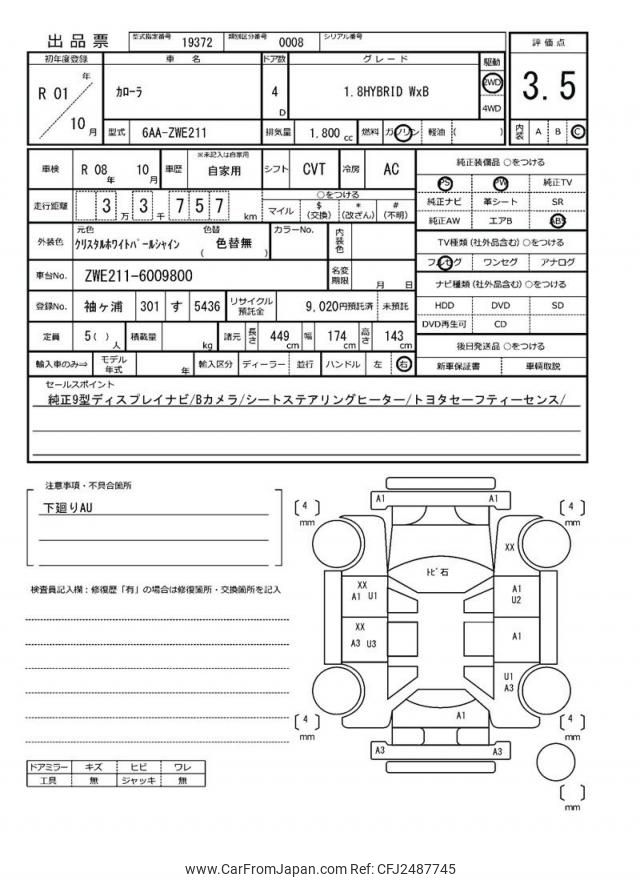 出品票 型式指定番号 19372 類別区分番号 0008 シリアル番号
初年度登録 車名 ドア数 グレード 駆動 評価点
R 01 年 10 月 カローラ 4 D 1.8HYBRID WxB 2WD 4WD 3.5
型式 6AA-ZWE211 排気量 1.800 cc 燃料 ガソリン 軽油 ( ) 内装 A B C
車検 R 08 年 10 月 車歴 ※未記入は自家用 自家用 シフト CVT 冷房 AC
純正装備品 ○をつける
PS PW 純正TV
走行距離 3 万 3 千 7 5 7 km ○をつける マイル $ (交換) * (改ざん) # (不明)
純正ナビ 革シート SR
純正AW エアB ABS
外装色 元色 クリスタルホワイトパールシャイン 色替 ( 色替無 ) カラーNo. 内装色
TV種類(社外品含む) ○をつける
フルセグ ワンセグ アナログ
車台No. ZWE211-6009800 名変期限 月 日
ナビ種類(社外品含む) ○をつける
登録No. 袖ヶ浦 301 す 5436 リサイクル預託金 9,020円預託済 未預託
HDD DVD SD
DVD再生可 CD
定員 5( ) 人 積載量 kg 諸元 長さ 449 cm 幅 174 cm 高さ 143 cm
後日発送品 ○をつける
輸入車のみ⇒ モデル年式 年 輸入区分 ディーラー 並行 ハンドル 左 右
新車保証書 車輌取説
セールスポイント
純正9型ディスプレイナビ/Bカメラ/シートステアリングヒーター/トヨタセーフティーセンス/
注意事項・不具合箇所
下廻りAU
検査員記入欄:修復歴「有」の場合は修復箇所・交換箇所を記入
A1 A1
4 mm 4 mm
XX
トビ石
XX
A1 U1
A1
U2
XX
A3 U3
A1
U1
A3
A1
4 mm 4 mm
A3 A3
mm
ドアミラー キズ ヒビ ワレ
工具 無 ジャッキ 無
www.CarFromJapan.com Ref: CFJ2487745